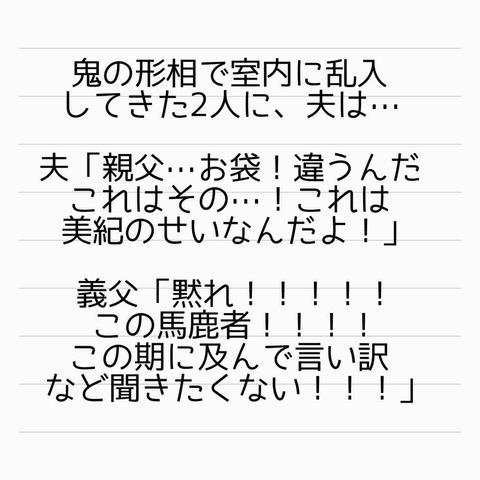 鬼の形相で室内に乱入
してきた2人に、夫は…
夫「親父…お袋！違うんだ
これはその…！これは
美紀のせいなんだよ！」
義父「黙れ！！！！！
この馬鹿者！！！！
この期に及んで言い訳
など聞きたくない！！！」